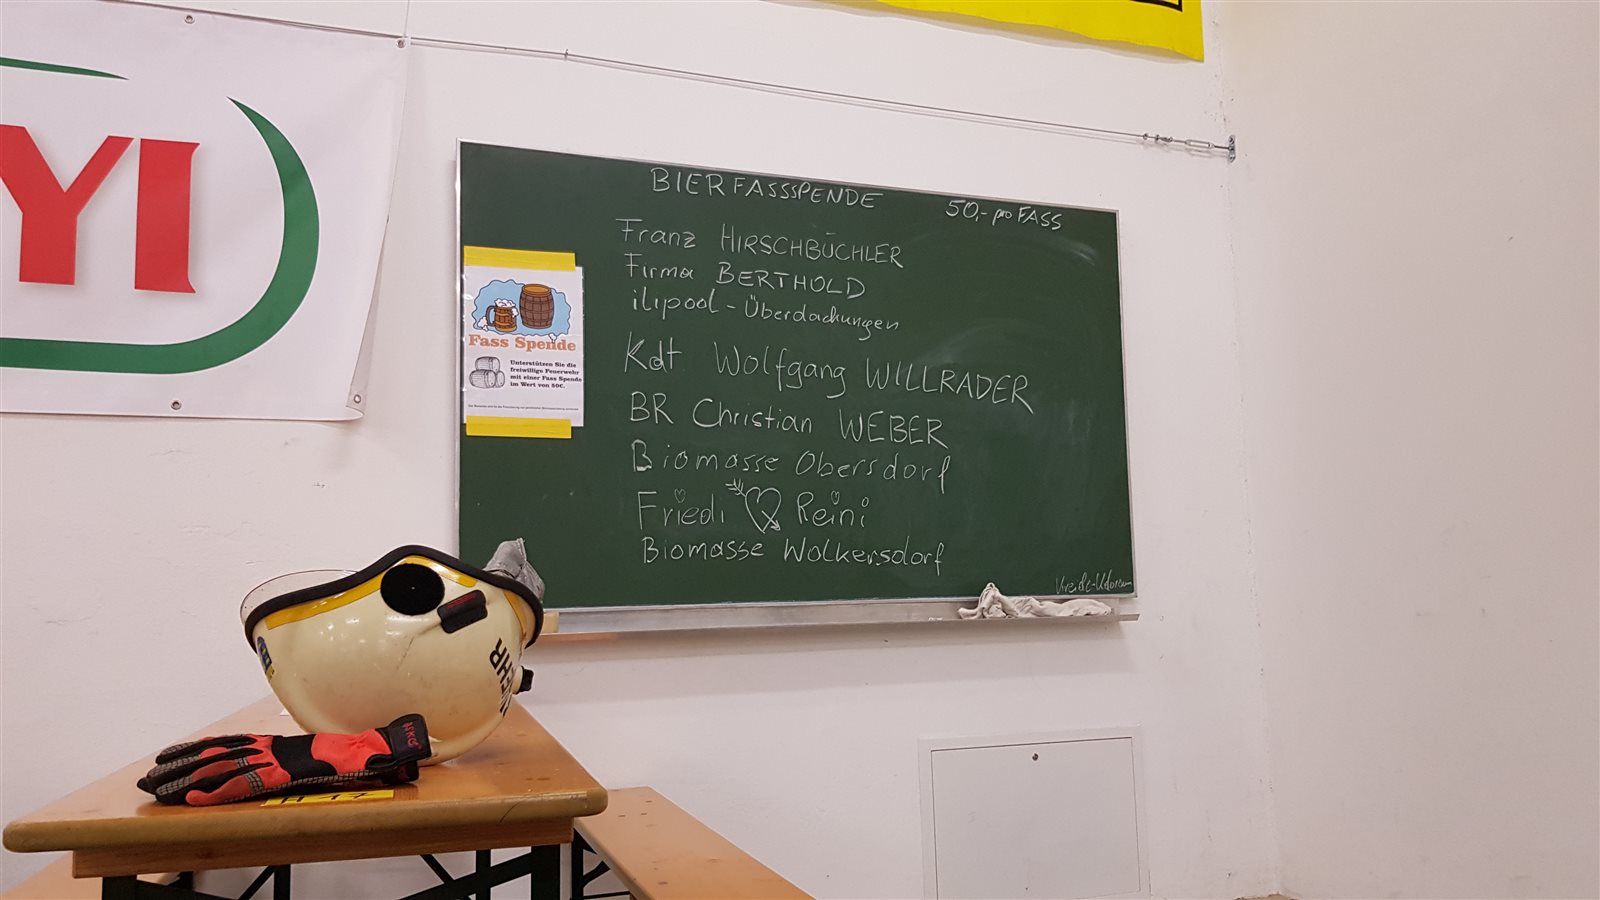 YI
BIERFASSSPENDE 50,- pro FASS
Franz HIRSCHBÜCHLER
Firma BERTHOLD
ilipool - Überdachungen
Kdt Wolfgang WILLRADER
BR Christian WEBER
Biomasse Obersdorf
Friedi Reini
Biomasse Wolkersdorf
Fass Spende
Unterstützen Sie die
freiwillige Feuerwehr
mit einer Fass Spende
im Wert von 50€.
EHR
H 17